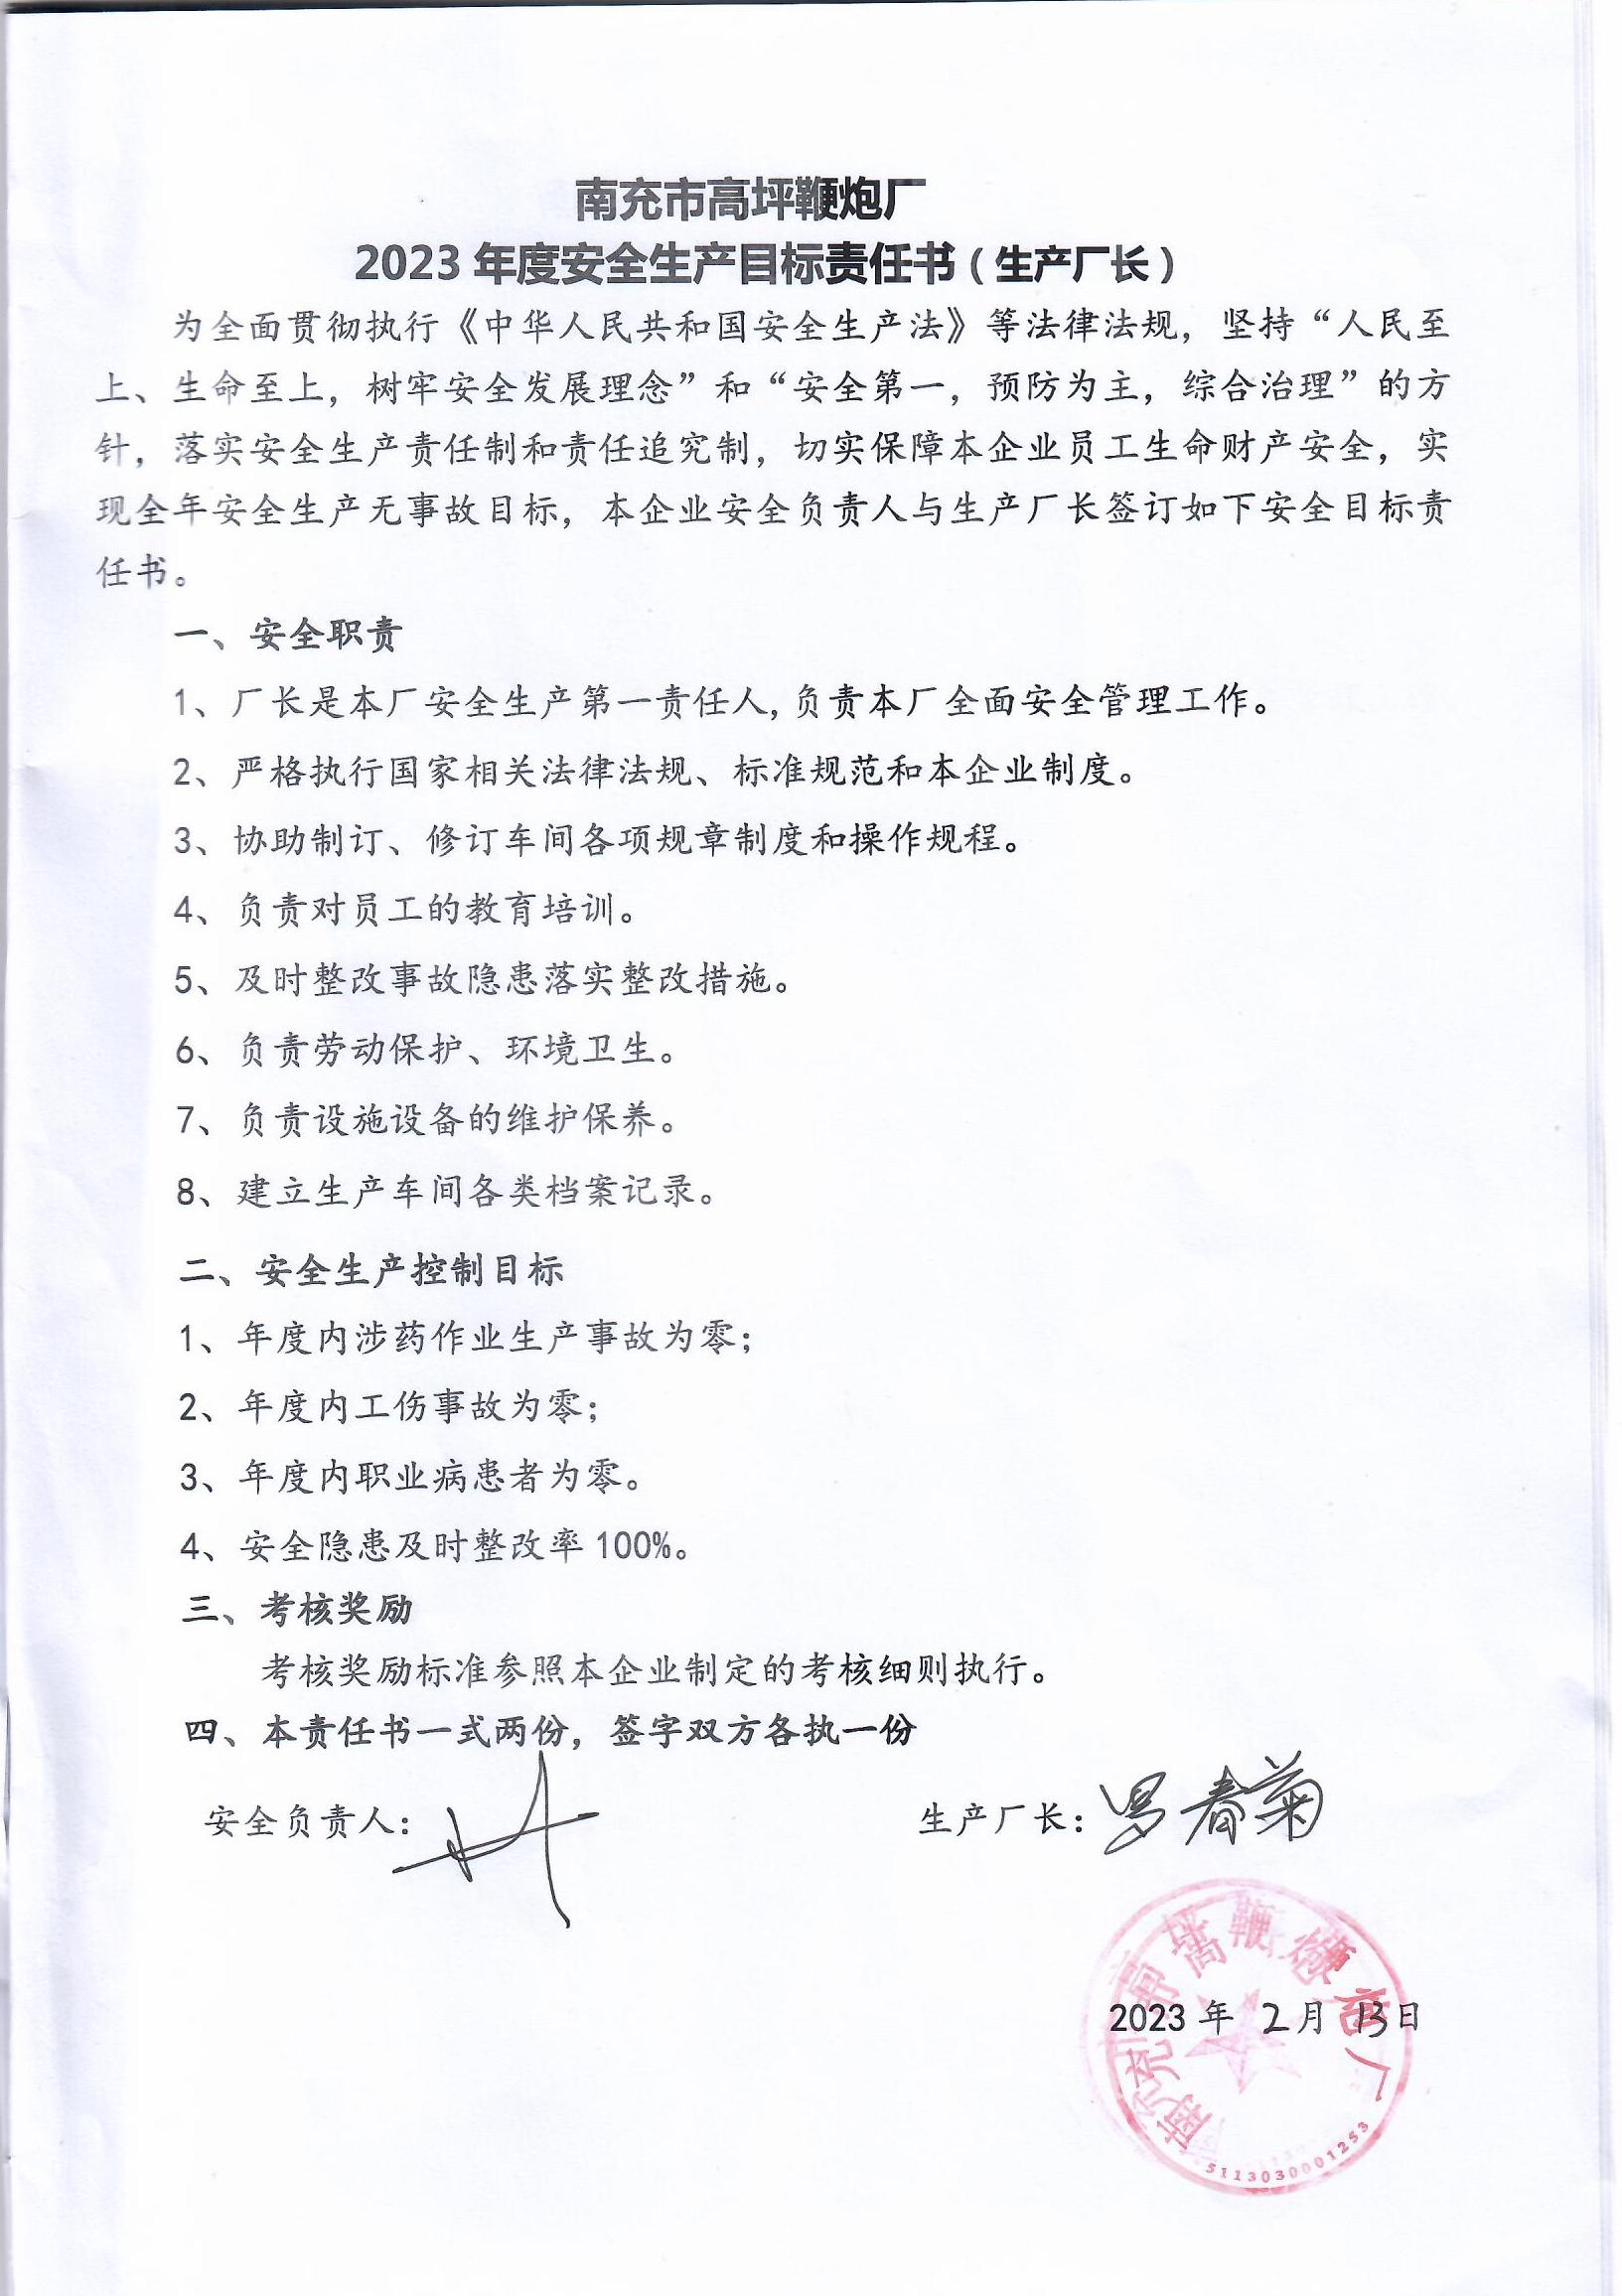 南充市高坪鞭炮厂
2023 年度安全生产目标责任书（生产厂长）
为全面贯彻执行《中华人民共和国安全生产法》等法律法规，坚持“人民至
上、生命至上，树牢安全发展理念”和“安全第一，预防为主，综合治理”的方
针，落实安全生产责任制和责任追究制，切实保障本企业员工生命财产安全，实
现全年安全生产无事故目标，本企业安全负责人与生产厂长签订如下安全目标责
任书。
一、安全职责
1、厂长是本厂安全生产第一责任人,负责本厂全面安全管理工作。
2、严格执行国家相关法律法规、标准规范和本企业制度。
3、协助制订、修订车间各项规章制度和操作规程。
4、负责对员工的教育培训。
5、及时整改事故隐患落实整改措施。
6、负责劳动保护、环境卫生。
7、负责设施设备的维护保养。
8、建立生产车间各类档案记录。
二、安全生产控制目标
1、年度内涉药作业生产事故为零；
2、年度内工伤事故为零；
3、年度内职业病患者为零。
4、安全隐患及时整改率 100%。
三、考核奖励
考核奖励标准参照本企业制定的考核细则执行。
四、本责任书一式两份，签字双方各执一份
安全负责人：
生产厂长：罗春菊
2023 年 2月 13日
南充市高坪鞭炮厂
5113030001253